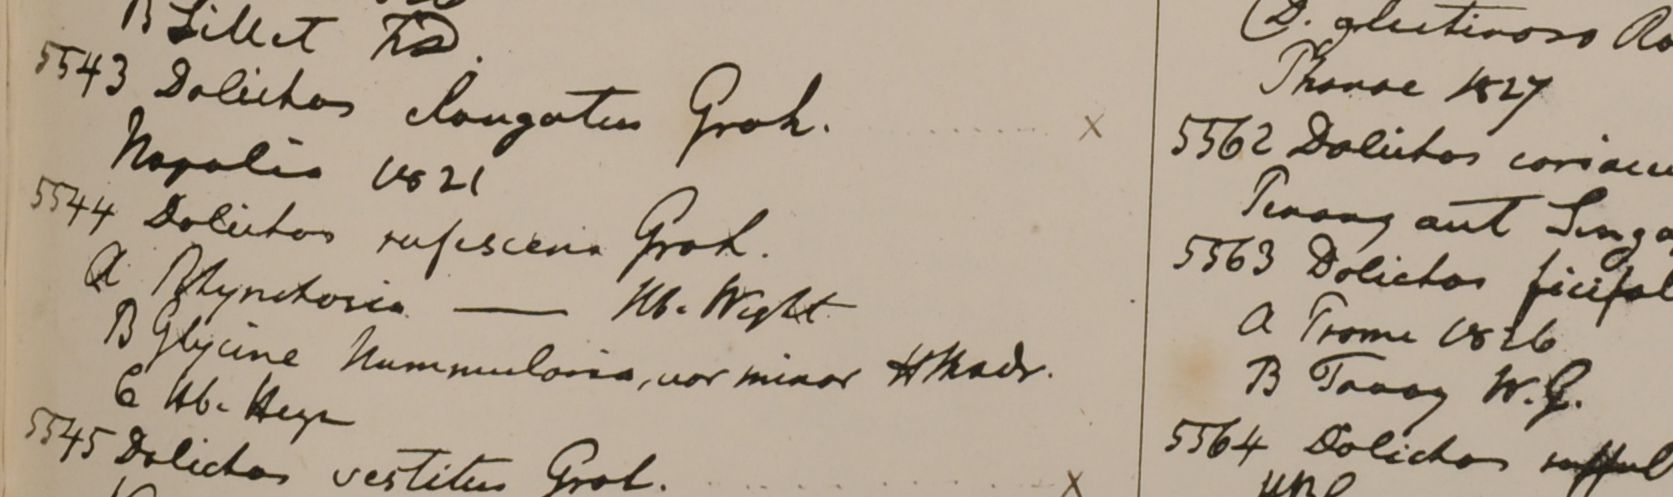 B Sillet FD.
5543 Dolichos elongatus Grah. x
Napalia 1821
5544 Dolichos rufescens Grah.
a Rhynchosia — Hb. Wight
B Glycine Nummularia, var minor H Madr.
C Hb. Heyn
5545 Dolichos vestitus Grah. x
D. glutinosa Ro
1827
5562 Dolichos coriaceu
Penang aut Singa
5563 Dolichos ficifol
a Prome 1826
B Tavoy W.G.
5564 Dolichos